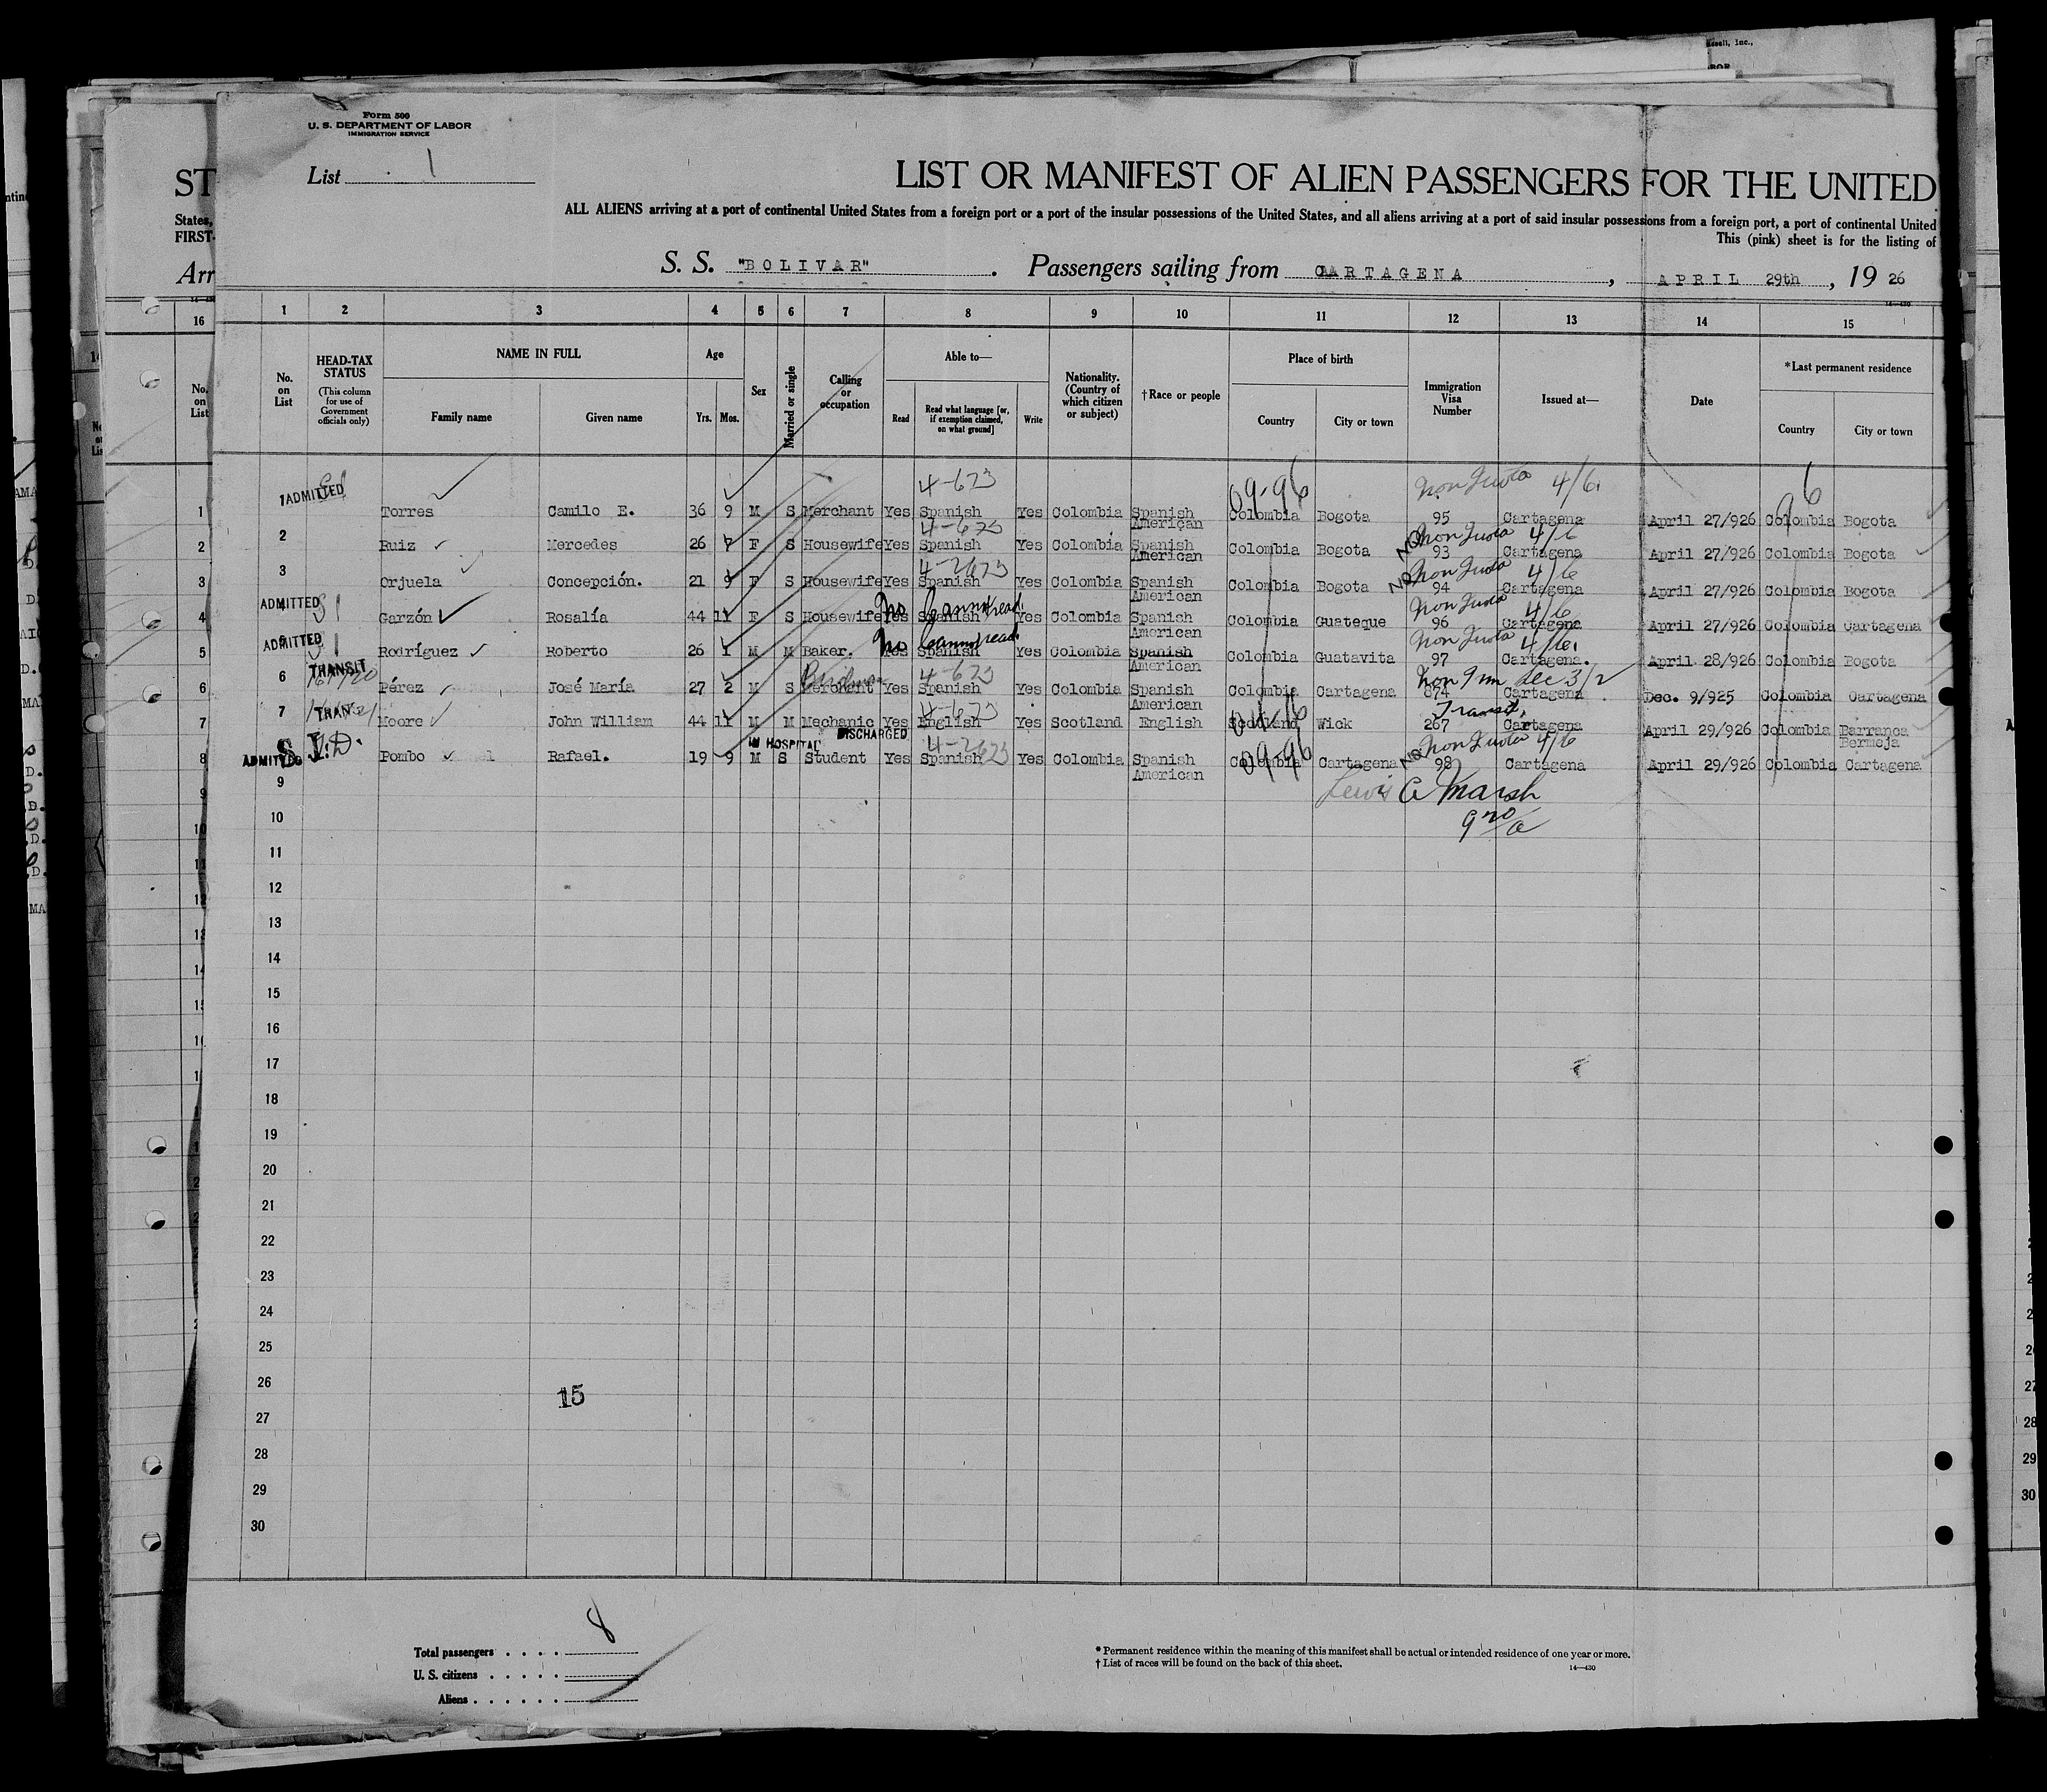 Form 500
U. S. DEPARTMENT OF LABOR
IMMIGRATION SERVICE
List 1
LIST OR MANIFEST OF ALIEN PASSENGERS FOR THE UNITED
ALL ALIENS arriving at a port of continental United States from a foreign port or a port of the insular possessions of the United States, and all aliens arriving at a port of said insular possessions from a foreign port, a port of continental United
This (pink) sheet is for the listing of
S. S. "BOLIVAR" . Passengers sailing from CARTAGENA , APRIL 29th , 19 26
14—430
1 2 3 4 5 6 7 8 9 10 11 12 13 14 15
No. on List
HEAD-TAX STATUS
(This column for use of Government officials only)
NAME IN FULL
Family name Given name
Age
Yrs. Mos.
Sex
Married or single
Calling or occupation
Able to—
Read
Read what language [or, if exemption claimed, on what ground]
Write
Nationality. (Country of which citizen or subject)
†Race or people
Place of birth
Country City or town
Immigration Visa Number
Issued at—
Date
*Last permanent residence
Country City or town
4-623 09-96 4/6 96
1 ADMITTED Torres Camilo E. 36 9 M S Merchant Yes Spanish Yes Colombia Spanish American Colombia Bogota 95 Cartagena April 27/926 Colombia Bogota
4-623 4/6
2 Ruiz Mercedes 26 7 F S Housewife Yes Spanish Yes Colombia Spanish American Colombia Bogota 93 Cartagena April 27/926 Colombia Bogota
4-2623 4/6
3 Orjuela Concepción. 21 9 F S Housewife Yes Spanish Yes Colombia Spanish American Colombia Bogota 94 Cartagena April 27/926 Colombia Bogota
No Cannot read 4/6
4 ADMITTED Garzón Rosalía 44 11 F S Housewife Yes Spanish Yes Colombia Spanish American Colombia Guateque 96 Cartagena April 27/926 Colombia Cartagena
No Cannot read 4/6
5 ADMITTED Rodríguez Roberto 26 1 M M Baker. Yes Spanish Yes Colombia Spanish American Colombia Guatavita 97 Cartagena. April 28/926 Colombia Bogota
4-623
6 TRANSIT Pérez José María 27 2 M S Merchant Yes Spanish Yes Colombia Spanish American Colombia Cartagena 874 Cartagena Dec. 9/925 Colombia Cartagena
4-623 Transit
7 TRAN Moore John William 44 11 M M Mechanic Yes English Yes Scotland English Scotland Wick 267 Cartagena April 29/926 Colombia Barranca Bermeja
IN HOSPITAL DISCHARGED 4-2623 09-96 4/6
8 ADMITTED Pombo Rafael. 19 9 M S Student Yes Spanish Yes Colombia Spanish American Colombia Cartagena 98 Cartagena April 29/926 Colombia Cartagena
Lewis C Marsh
9
10
11
12
13
14
15
16
17
18
19
20
21
22
23
24
25
26
15
27
28
29
30
Total passengers 8
U. S. citizens
Aliens
* Permanent residence within the meaning of this manifest shall be actual or intended residence of one year or more.
† List of races will be found on the back of this sheet.
14—430